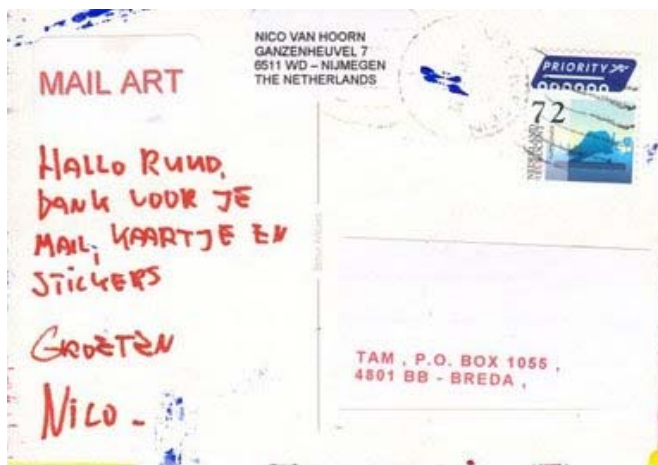 NICO VAN HOORN
GANZENHEUVEL 7
6511 WD – NIJMEGEN
THE NETHERLANDS
PRIORITY
72
MAIL ART
HALLO RUUD,
DANK VOOR JE
MAIL, KAARTJE EN
STICKERS
GROETEN
NICO -
TAM , P.O. BOX 1055 ,
4801 BB - BREDA ,